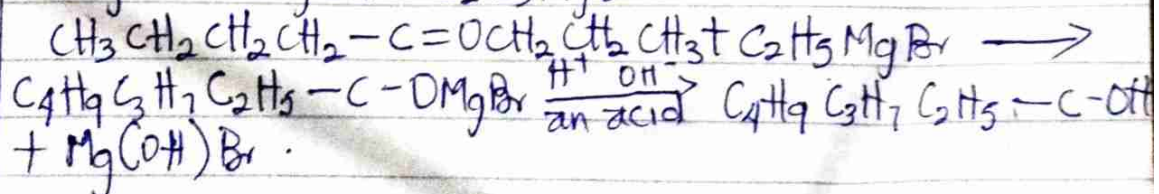 CH3 CH2 CH2 CH2 – C = OCH2 CH2 CH3 + C2H5 MgBr ⟶
C4H9 C3H7 C2H5 – C – OMgBr H+ OH- / an acid → C4H9 C3H7 C2H5 – C – OH
+ Mg(OH)Br .